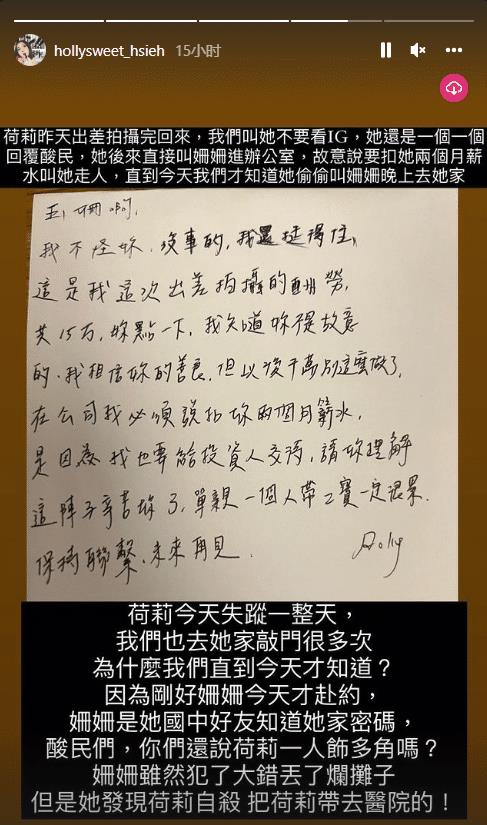 hollysweet_hsieh 15小时
荷莉昨天出差拍攝完回來，我們叫她不要看IG，她還是一個一個
回覆酸民，她後來直接叫姍姍進辦公室，故意說要扣她兩個月薪
水叫她走人，直到今天我們才知道她偷偷叫姍姍晚上去她家
珊啊,
我不怪妳,沒事的,我還挺得住,
這是我這次出差拍攝的酬勞,
共15万,妳點一下,我知道妳故意
的,我相信妳的善良,但以後千萬別這麼做了,
在公司我必須說扣妳兩個月薪水,
是因為我也要給投資人交待,請妳理解
這陣子辛苦妳了,單親一個人帶2寶一定很累.
保持聯繫,未來再見. Holly
荷莉今天失蹤一整天，
我們也去她家敲門很多次
為什麼我們直到今天才知道？
因為剛好姍姍今天才赴約，
姍姍是她國中好友知道她家密碼，
酸民們，你們還說荷莉一人飾多角嗎？
姍姍雖然犯了大錯丟了爛攤子
但是她發現荷莉自殺 把荷莉帶去醫院的！